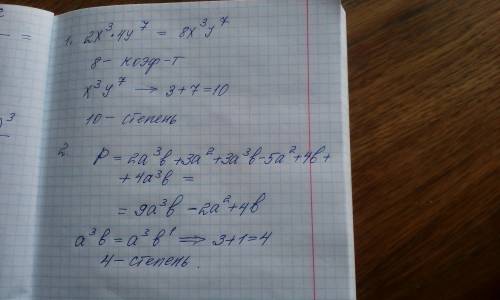 =
1. 2x³·4y⁷ = 8x³y⁷
8 – коэф-т
x³y⁷ → 3+7=10
10 – степень
2. P = 2a³b+3a²+3a³b-5a²+4b+
+4a³b =
= 9a³b - 2a²+4b
a³b = a³b¹ ⇒ 3+1=4
4 – степень.